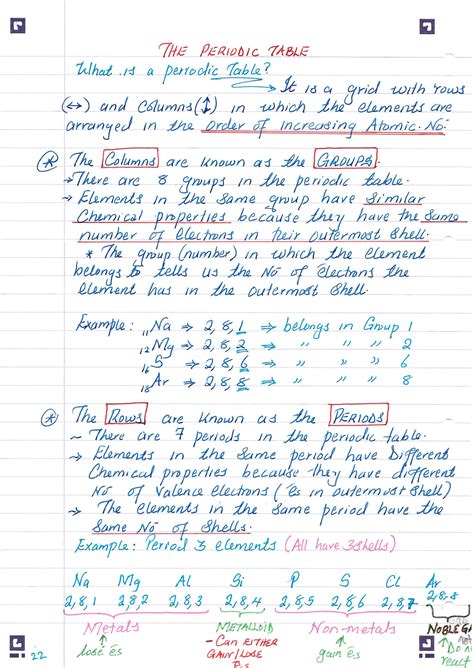 THE PERIODIC TABLE
What is a periodic Table?
It is a grid with rows
(↔) and Columns(↕) in which the elements are
arranged in the order of increasing Atomic No:
* The Columns are known as the GROUPS.
→ There are 8 groups in the periodic table.
→ Elements in the same group have similar
Chemical properties because they have the same
number of electrons in their outermost shell.
* The group (number) in which the element
belongs to tells us the No of electrons the
element has in the outermost shell.
Example: ₁₁Na ⇒ 2,8,1 ⇒ belongs in Group 1
₁₂Mg ⇒ 2,8,2 ⇒ " " " 2
₁₆S ⇒ 2,8,6 ⇒ " " " 6
₁₈Ar ⇒ 2,8,8 ⇒ " " " 8
* The Rows are known as the PERIODS
~ There are 7 periods in the periodic table.
→ Elements in the same period have Different
Chemical properties because they have different
No of Valence electrons (és in outermost shell)
→ The elements in the same period have the
same No of shells.
Example: Period 3 elements (All have 3 shells)
Na Mg Al Si P S Cl Ar
2,8,1 2,8,2 2,8,3 2,8,4 2,8,5 2,8,6 2,8,7 2,8,8
Metals METALLOID Non-metals NOBLE GA
lose és - Can EITHER gain és Do not
22 GAIN/LOSE react
és